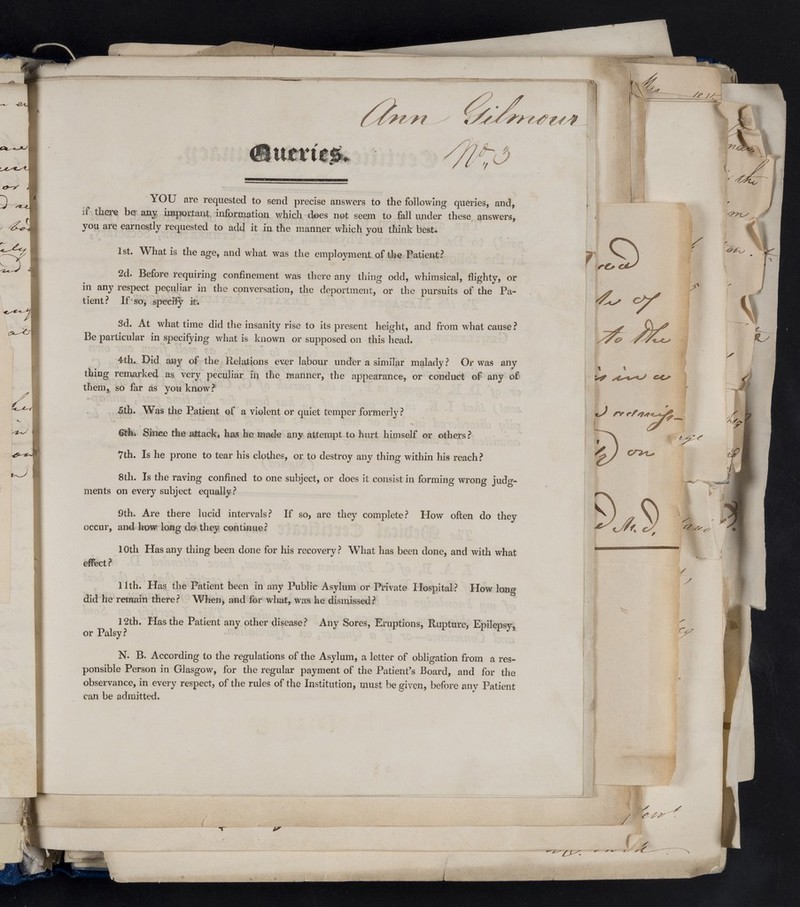 Ann Gilmour
Queries.
No. 3
YOU are requested to send precise answers to the following queries, and,
if there be any important information which does not seem to fall under these answers,
you are earnestly requested to add it in the manner which you think best.
1st. What is the age, and what was the employment of the Patient?
2d. Before requiring confinement was there any thing odd, whimsical, flighty, or
in any respect peculiar in the conversation, the deportment, or the pursuits of the Pa-
tient? If so, specify it.
3d. At what time did the insanity rise to its present height, and from what cause?
Be particular in specifying what is known or supposed on this head.
4th. Did any of the Relations ever labour under a similar malady? Or was any
thing remarked as very peculiar in the manner, the appearance, or conduct of any of
them, so far as you know?
5th. Was the Patient of a violent or quiet temper formerly?
6th. Since the attack, has he made any attempt to hurt himself or others?
7th. Is he prone to tear his clothes, or to destroy any thing within his reach?
8th. Is the raving confined to one subject, or does it consist in forming wrong judg-
ments on every subject equally?
9th. Are there lucid intervals? If so, are they complete? How often do they
occur, and how long do they continue?
10th Has any thing been done for his recovery? What has been done, and with what
effect?
11th. Has the Patient been in any Public Asylum or Private Hospital? How long
did he remain there? When, and for what, was he dismissed?
12th. Has the Patient any other disease? Any Sores, Eruptions, Rupture, Epilepsy,
or Palsy?
N. B. According to the regulations of the Asylum, a letter of obligation from a res-
ponsible Person in Glasgow, for the regular payment of the Patient's Board, and for the
observance, in every respect, of the rules of the Institution, must be given, before any Patient
can be admitted.
of
to the
is in a
on